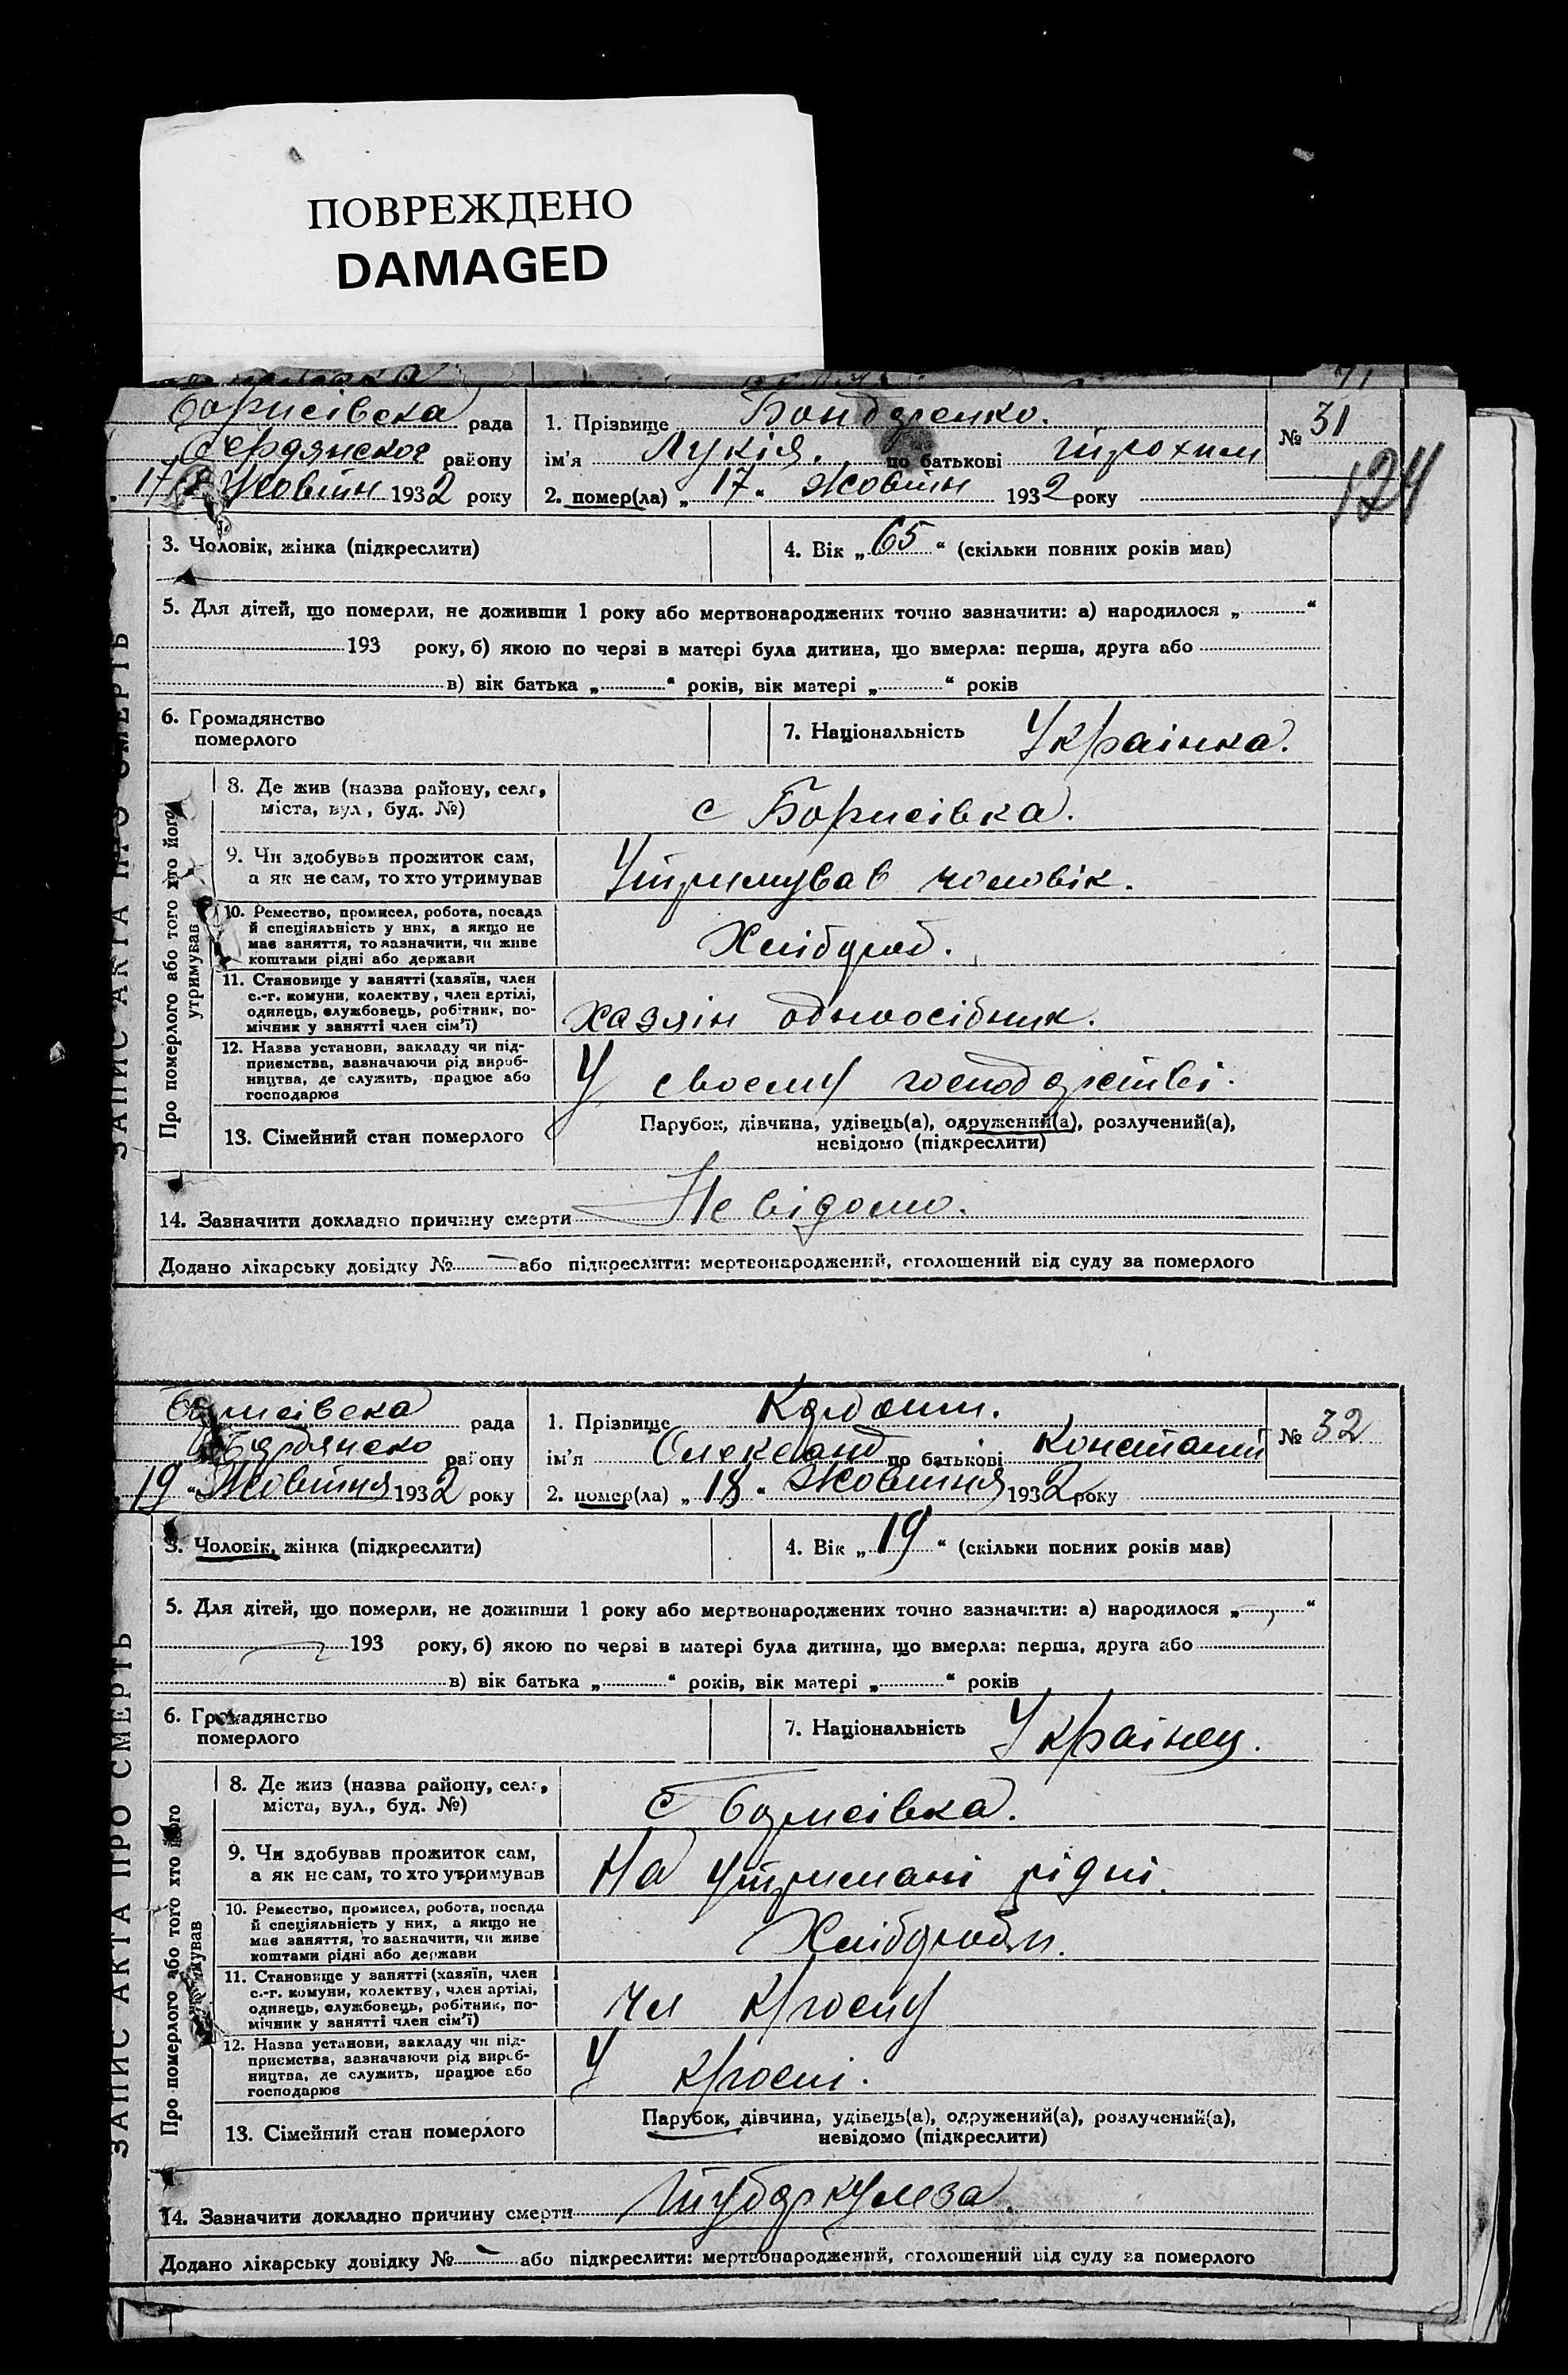 ПОВРЕЖДЕНО
DAMAGED
Борисівска рада
Бердянског району
17 Жовтн 1932 року
1. Прізвище Бондаренко.
ім'я Лукія. по батькові трохим
2. помер(ла) „ 17 “ Жовтн 1932 року
№ 31
124
ЗАПИС АКТА ПРО СМЕРТЬ
3. Чоловік, жінка (підкреслити)
4. Вік „ 65 “ (скільки повних років мав)
5. Для дітей, що померли, не доживши 1 року або мертвонароджених точно зазначити: а) народилося „ “
193 року, б) якою по черзі в матері була дитина, що вмерла: перша, друга або
в) вік батька „ “ років, вік матері „ “ років
6. Громадянство
померлого
7. Національність Украінка.
Про померлого або того хто його
утримував
8. Де жив (назва району, села,
міста, вул., буд. №)
с Борисівка.
9. Чи здобував прожиток сам,
а як не сам, то хто утримував
Утримував чоловік.
10. Ремество, промисел, робота, посада
й спеціяльність у них, а якщо не
має заняття, то зазначити, чи живе
коштами рідні або держави
Хлібороб.
11. Становище у занятті (хазяїн, член
с.-г. комуни, колективу, член артілі,
одинець, службовець, робітник, по-
мічник у занятті член сім'ї)
хазяін одноосібник.
12. Назва установи, закладу чи під-
приємства, зазначаючи рід вироб-
ництва, де служить, працює або
господарює
У своєму господарстві.
13. Сімейний стан померлого
Парубок, дівчина, удівець(а), одружений(а), розлучений(а),
невідомо (підкреслити)
14. Зазначити докладно причину смерти Не відомо.
Додано лікарську довідку № — або підкреслити: мертвонароджений, оголошений від суду за померлого
Борисівска рада
Бердянско району
19 “ Жовтня 1932 року
1. Прізвище
ім'я Олександ по батькові Констант
2. помер(ла) „ 18 “ Жовтня 1932 року
№ 32
ЗАПИС АКТА ПРО СМЕРТЬ
3. Чоловік, жінка (підкреслити)
4. Вік „ 19 “ (скільки повних років мав)
5. Для дітей, що померли, не доживши 1 року або мертвонароджених точно зазначити: а) народилося „ “
193 року, б) якою по черзі в матері була дитина, що вмерла: перша, друга або
в) вік батька „ “ років, вік матері „ “ років
6. Громадянство
померлого
7. Національність Украінец.
Про померлого або того хто його
утримував
8. Де жив (назва району, села,
міста, вул., буд. №)
с Борисівка.
9. Чи здобував прожиток сам,
а як не сам, то хто утримував
На утримані рідні.
10. Ремество, промисел, робота, посада
й спеціяльність у них, а якщо не
має заняття, то зазначити, чи живе
коштами рідні або держави
Хлібороби.
11. Становище у занятті (хазяїн, член
с.-г. комуни, колективу, член артілі,
одинець, службовець, робітник, по-
мічник у занятті член сім'ї)
чл
12. Назва установи, закладу чи під-
приємства, зазначаючи рід вироб-
ництва, де служить, працює або
господарює
У
13. Сімейний стан померлого
Парубок, дівчина, удівець(а), одружений(а), розлучений(а),
невідомо (підкреслити)
14. Зазначити докладно причину смерти Туборкулеза.
Додано лікарську довідку № — або підкреслити: мертвонароджений, оголошений від суду за померлого